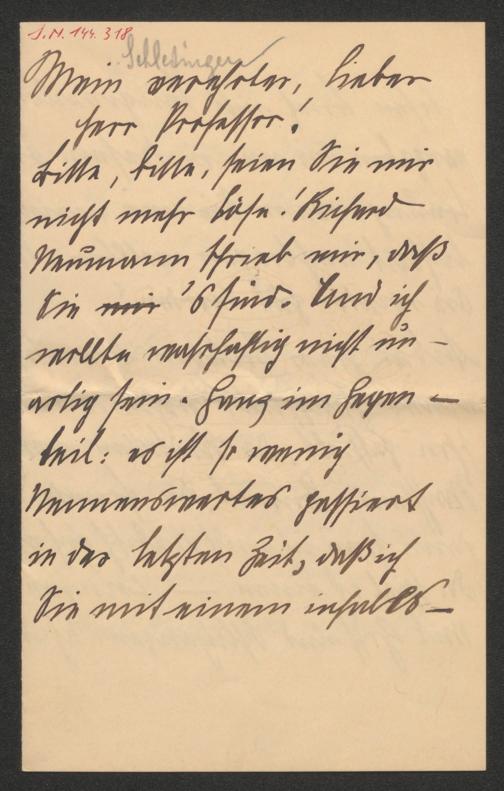 I.N. 144.318
Schlesinger
Mein verehrter, lieber
Herr Professor!
Bitte, bitte, seien Sie mir
nicht mehr böse! Richard
Neumann schrieb mir, daß
Sie mir 's sind. Und ich
wollte wahrhaftig nicht un-
artig sein. Ganz im Gegen-
teil: es ist so wenig
Nennenswertes passiert
in der letzten Zeit, daß ich
Sie mit einem inhalts-